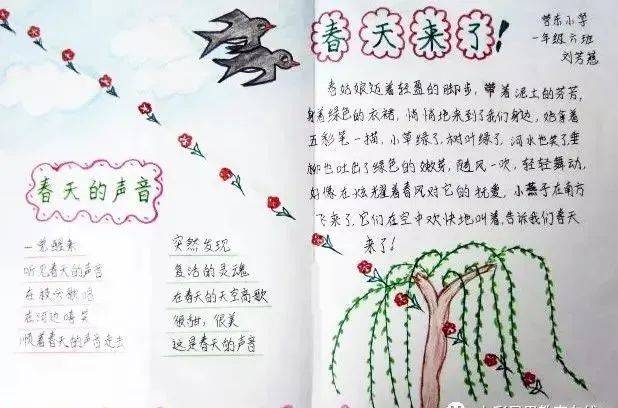 春天的声音
一觉醒来
听见春天的声音
在枝头歌唱
在河边嬉笑
顺着春天的声音走去
突然发现
复活的灵魂
在春天的天空高歌
很甜，很美
这是春天的声音
春天来了!
营东小学
一年级六班
刘芳慧
春姑娘迈着轻盈的脚步，带着泥土的芳芳,
身着绿色的衣裙，悄悄地来到了我们身边，她拿着
五彩笔一描，小草绿了，树叶绿了，河水也笑了垂
柳也吐出了绿色的嫩芽，随风一吹，轻轻舞动,
好像在炫耀着春风对它的抚爱，小燕子在南方
飞来了，它们在空中欢快地叫着，告诉我们春天
来了!